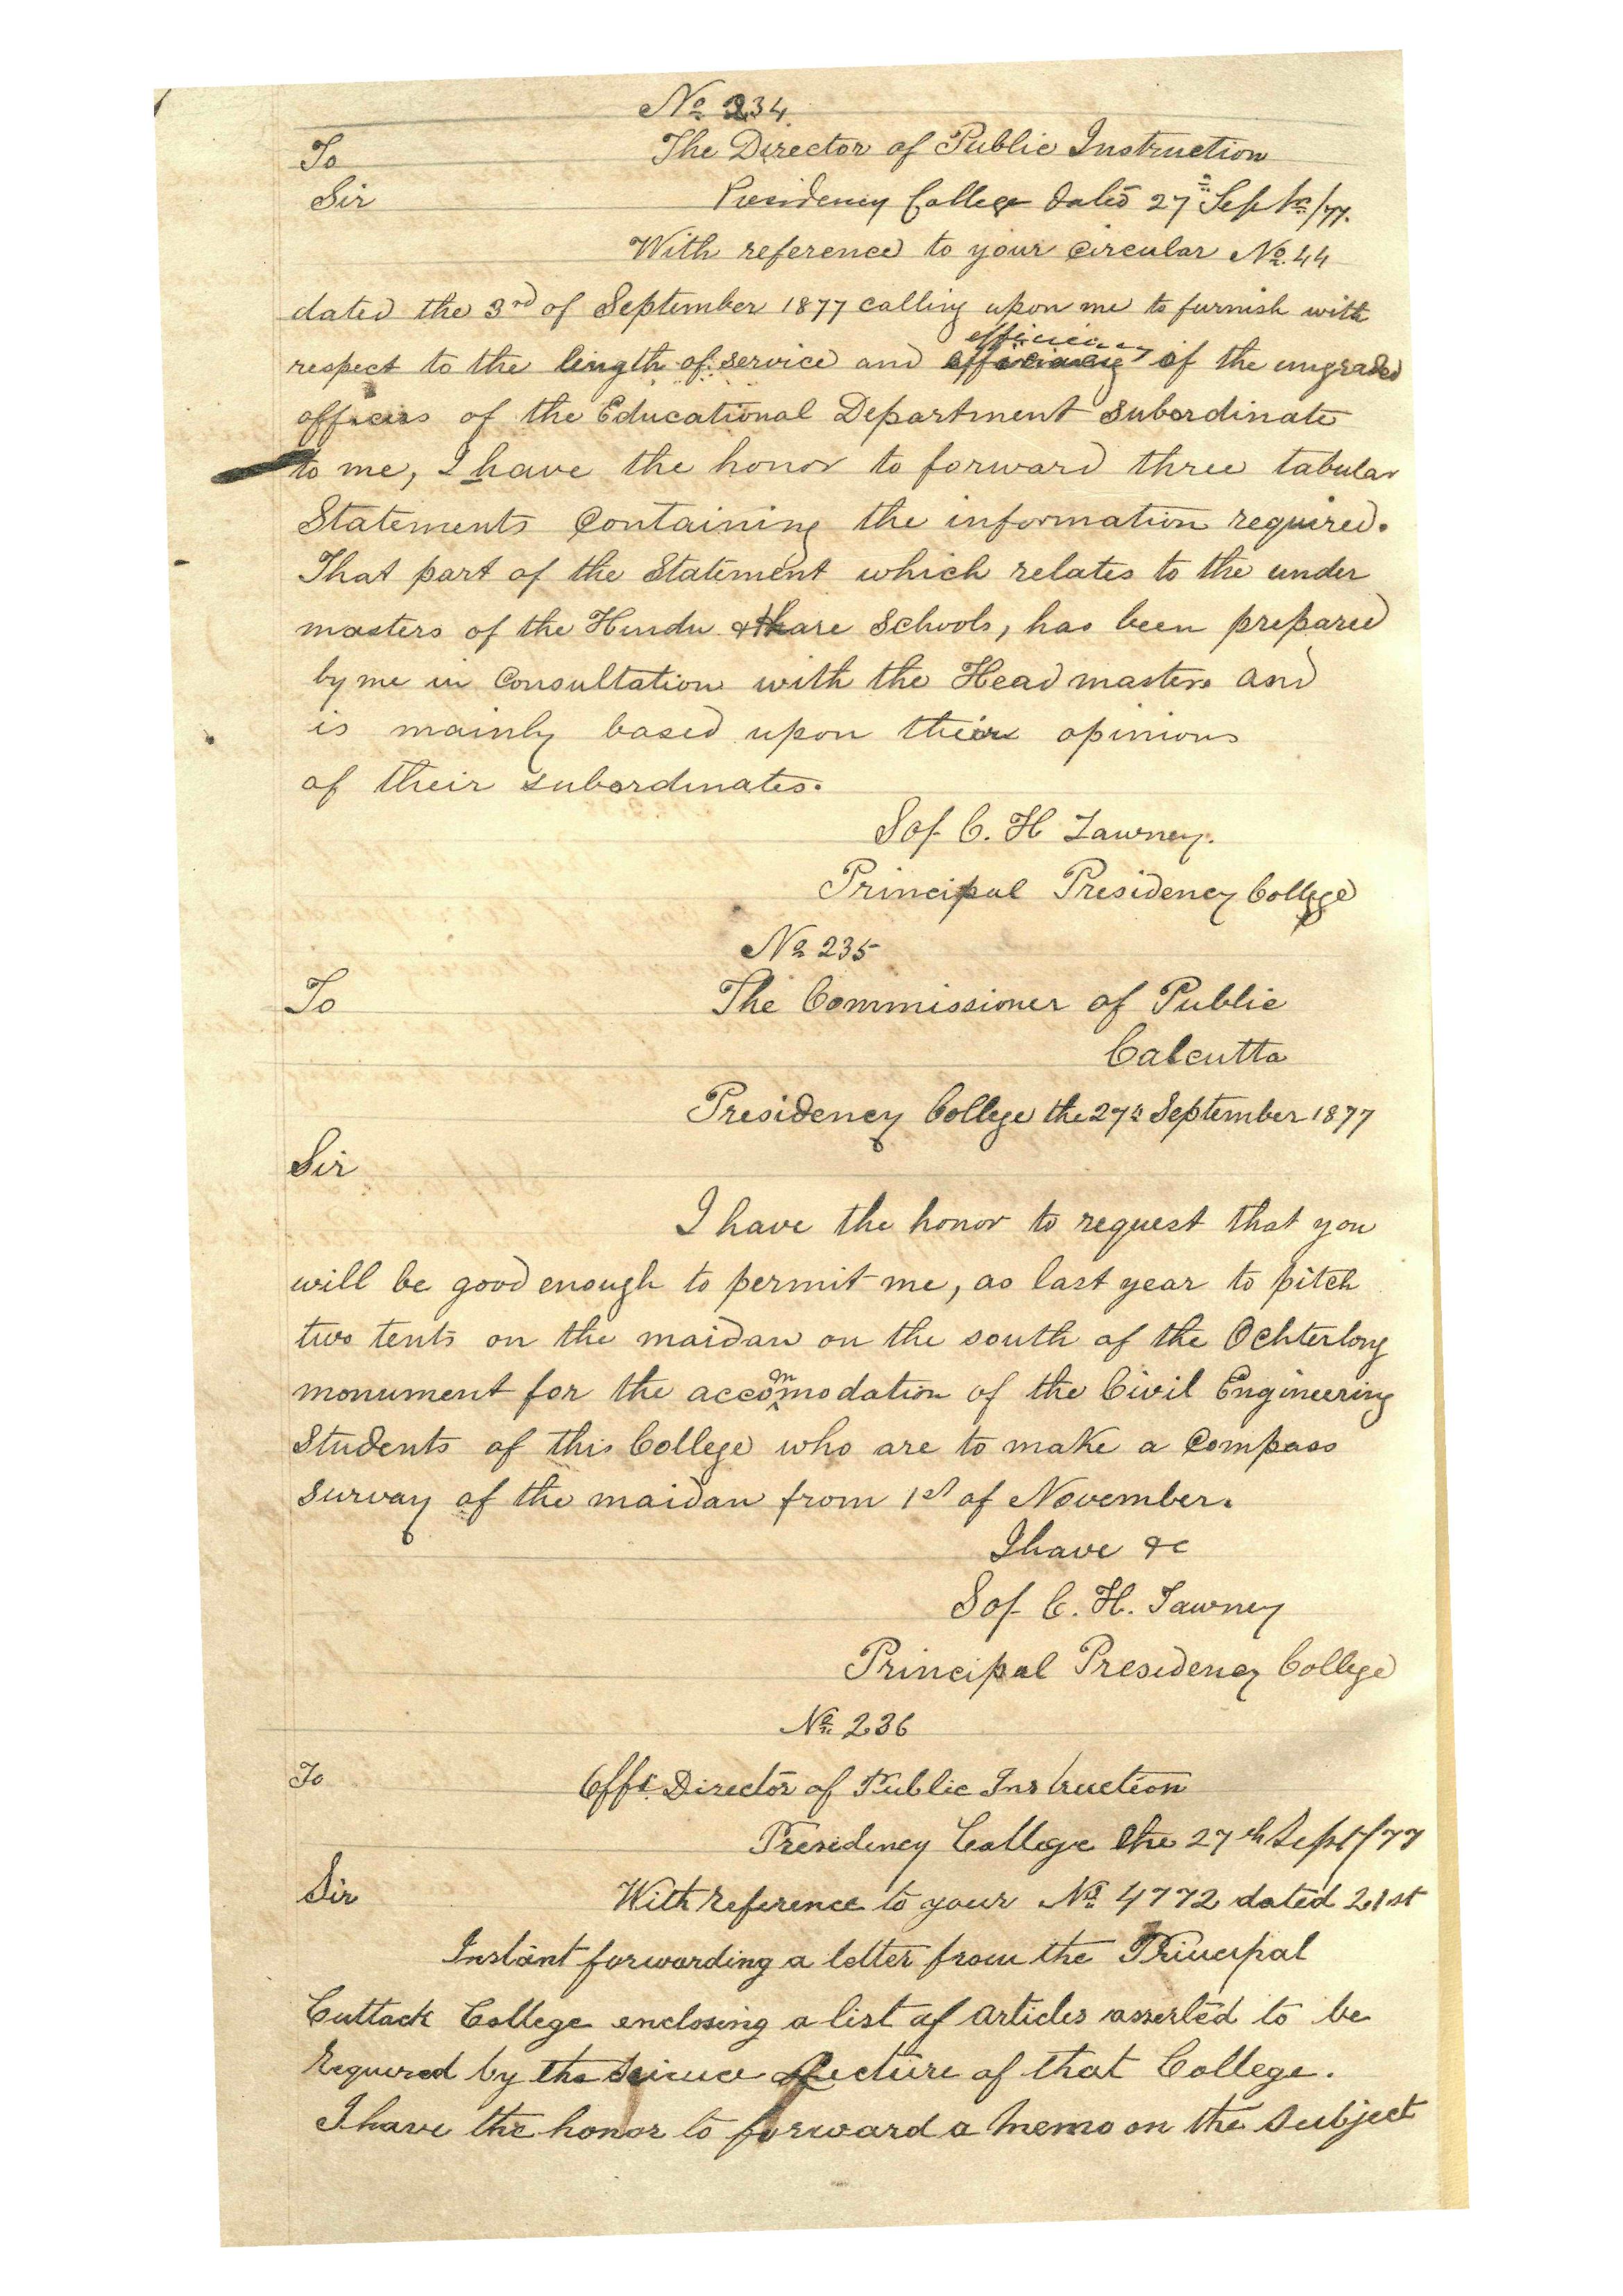 No 234.
To The Director of Public Instruction
Sir Presidency College dated 27th Septr/77.
With reference to your Circular No. 44
dated the 3rd of September 1877 calling upon me to furnish with
respect to the length of service and efficiency of the ungraded
officers of the Educational Department subordinate
to me, I have the honor to forward three tabular
Statements Containing the information required.
That part of the Statement which relates to the under
masters of the Hindu & Hare Schools, has been prepared
by me in Consultation with the Head masters and
is mainly based upon their opinions
of their subordinates.
C. H Tawney.
Principal Presidency College
No 235
To The Commissioner of Public
Calcutta
Presidency College the 27th September 1877
Sir
I have the honor to request that you
will be good enough to permit me, as last year to pitch
two tents on the maidan on the south of the Ochterlony
monument for the accommodation of the Civil Engineering
Students of this College who are to make a Compass
Survay of the maidan from 1st of November.
I have &c
C. H. Tawney
Principal Presidency College
No. 236
To Offg. Director of Public Instruction
Presidency College the 27th Sept/77
Sir With reference to your No. 4772 dated 21st
Instant forwarding a letter from the Principal
Cuttack College enclosing a list of articles asserted to be
required by the Science Lecture of that College.
I have the honor to forward a memo on the subject